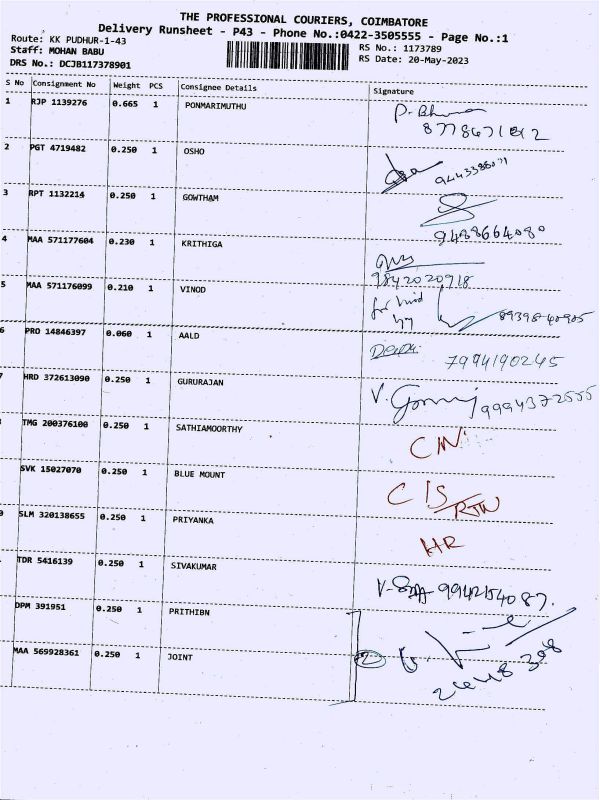 THE PROFESSIONAL COURIERS, COIMBATORE
Delivery Runsheet - P43 - Phone No.:0422-3505555 - Page No.:1
Route: KK PUDHUR-1-43
Staff: MOHAN BABU
RS No.: 1173789
DRS No.: DCJB117378901
RS Date: 20-May-2023
S No Consignment No Weight PCS Consignee Details Signature
1 RJP 1139276 0.665 1 PONMARIMUTHU
2 PGT 4719482 0.250 1 OSHO
3 RPT 1132214 0.250 1 GOWTHAM
9488664080
4 MAA 571177604 0.230 1 KRITHIGA
9842020918
5 MAA 571176099 0.210 1 VINOD
PRO 14846397 0.060 1 AALD
7994190245
HRD 372613090 0.250 1 GURURAJAN
9994372555
TMG 200376100 0.250 1 SATHIAMOORTHY
SVK 15027070 0.250 1 BLUE MOUNT
SLM 320138655 0.250 1 PRIYANKA
HR
TDR 5416139 0.250 1 SIVAKUMAR
DPM 391951 0.250 1 PRITHIBN
MAA 569928361 0.250 1 JOINT
2